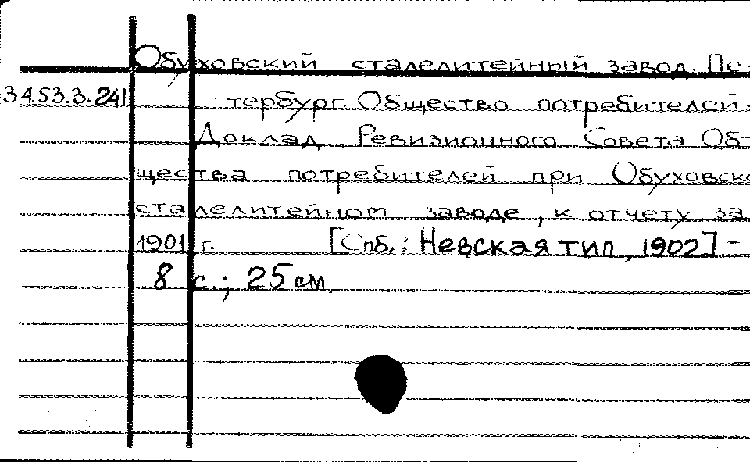 Обуховский сталелитейный завод. Пе-
34.53.3.241
тербург. Общество потребителей.
Доклад Ревизионного Совета Об-
щества потребителей при Обуховско
сталелитейном заводе, к отчету за
1901 г. [Спб.: Невская тип, 1902] -
8 с.; 25 см